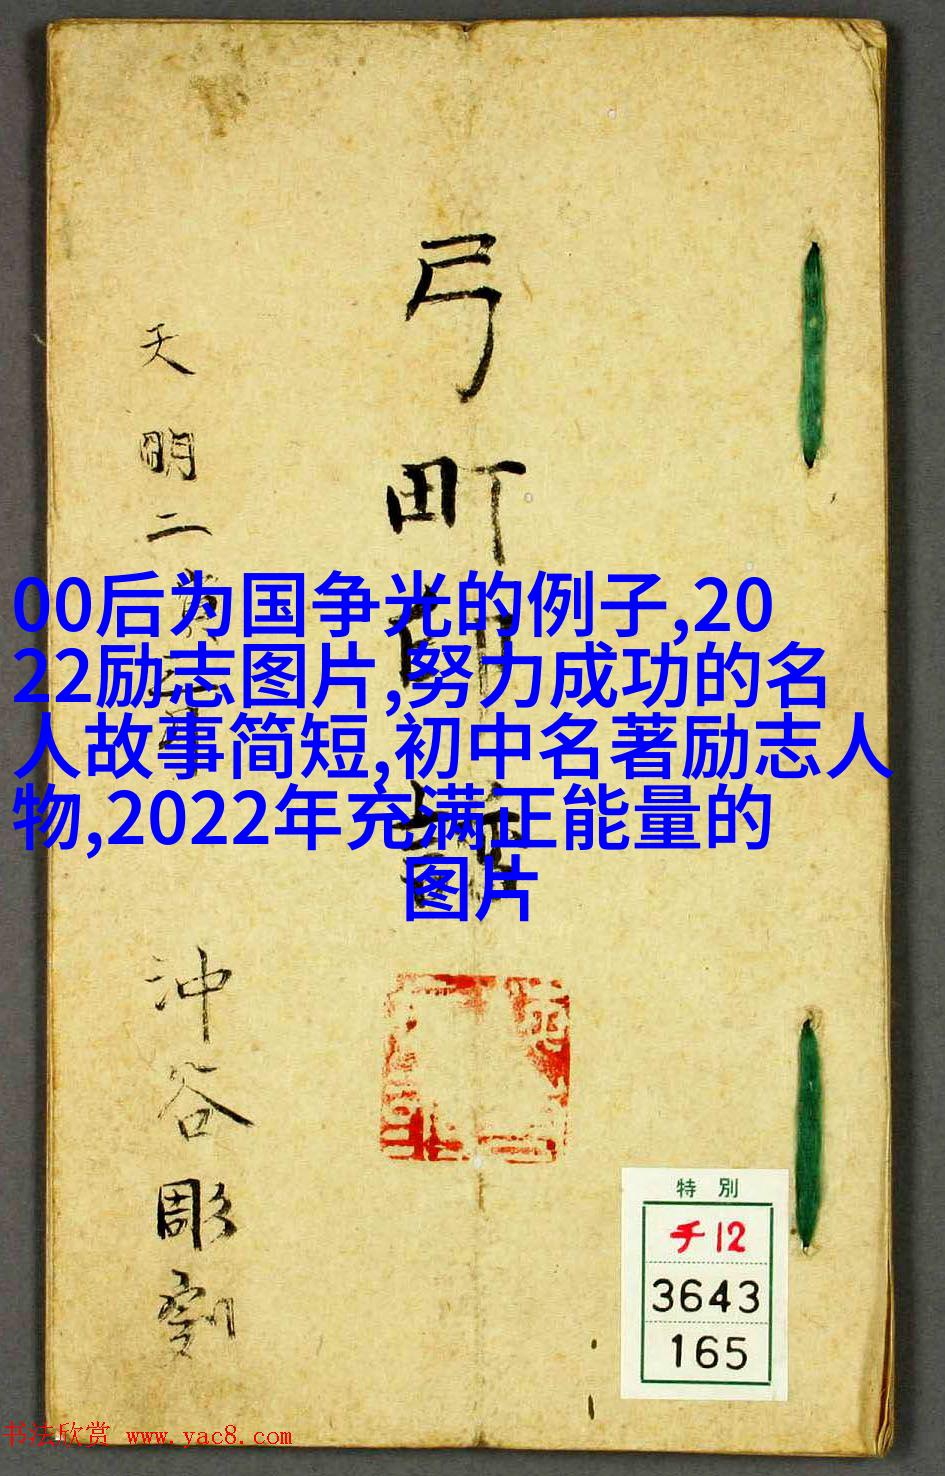 弓町印譜
天明二
沖谷彫刻
00后为国争光的例子,20
22励志图片,努力成功的名
人故事简短,初中名著励志人
物,2022年充满正能量的
图片
特別
チ12
3643
165
书法欣赏 www.yac8.com